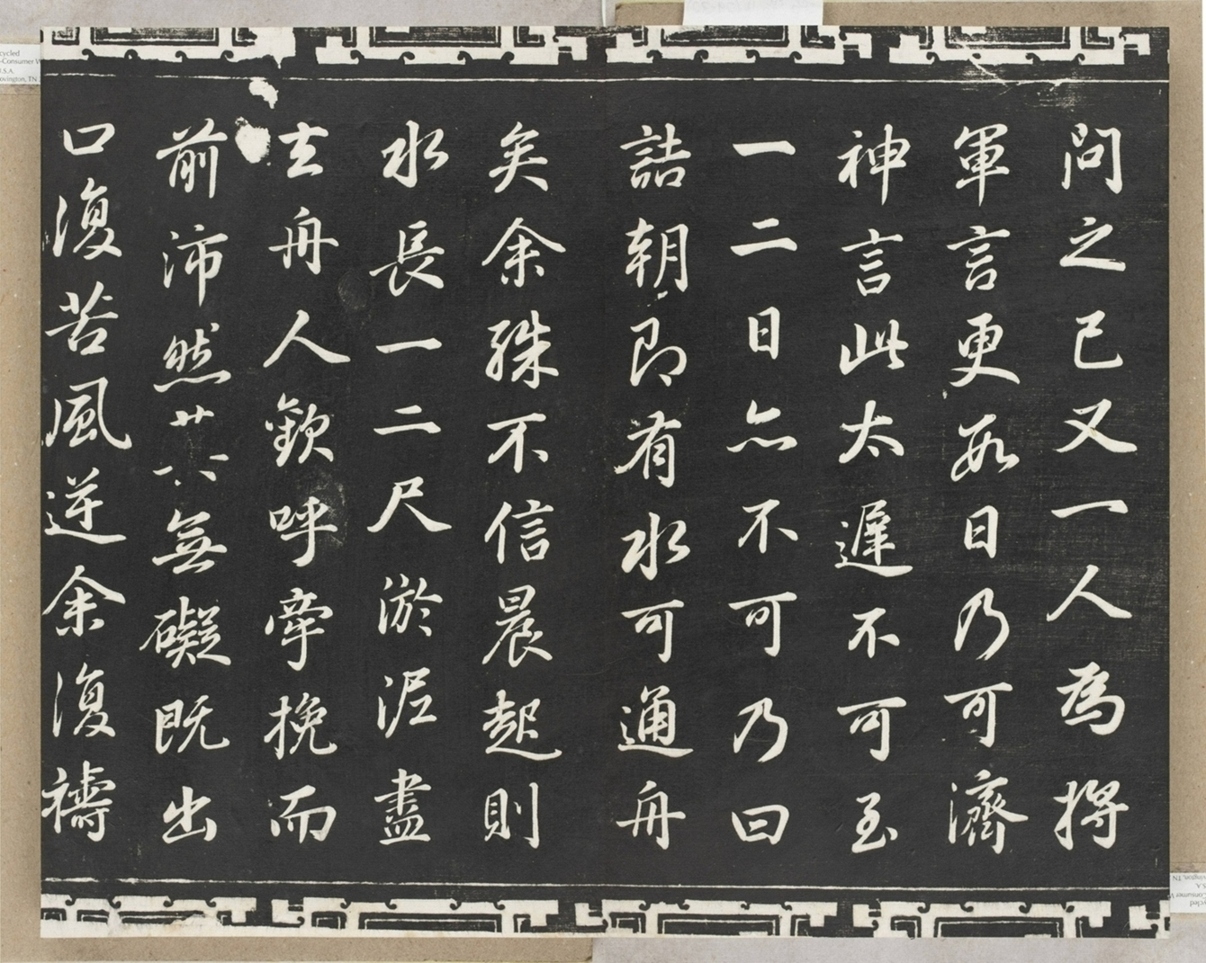 問之已又一人為將
軍言更數日乃可濟
神言此太遲不可至
一二日亦不可乃曰
詰朝即有水可通舟
矣余殊不信晨起則
水長一二尺淤泥盡
去舟人歡呼牽挽而
前沛然其無礙既出
口復苦風逆余復禱